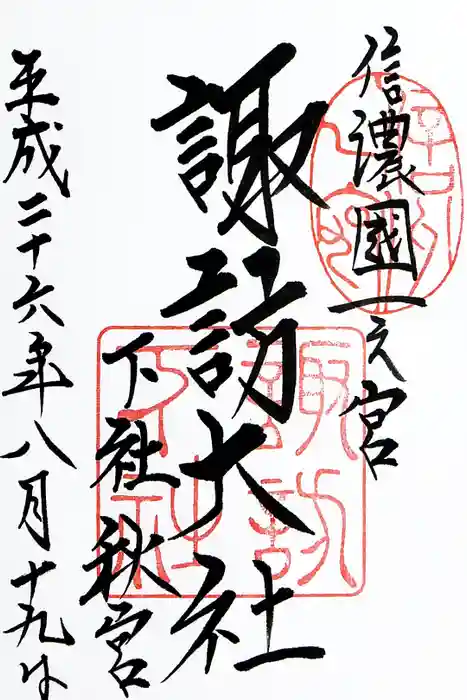 信濃國一之宮
諏訪大社
下社秋宮
平成二十六年八月十九日